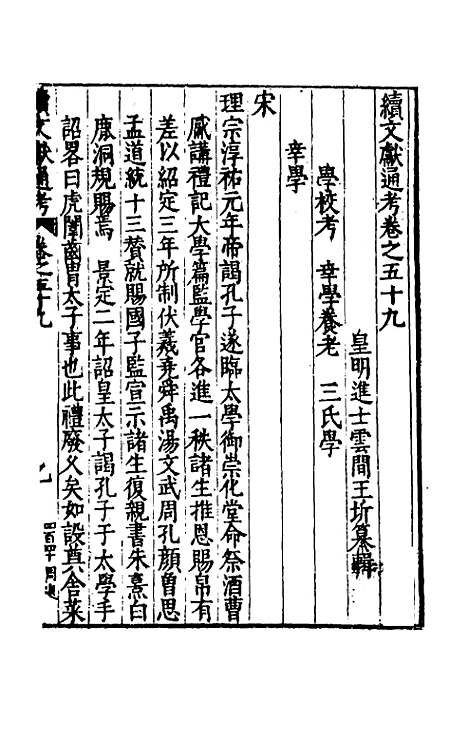 續文獻通考卷之五十九
皇明進士雲間王圻纂輯
學校考　幸學養老　三氏學
幸學
宋
理宗淳祐元年帝謁孔子遂臨太學御崇化堂命祭酒曹
觱講禮記大學篇監學官各進一秩諸生推恩賜帛有
差以紹定三年所制伏羲堯舜禹湯文武周孔顏曾思
孟道統十三贊就賜國子監宣示諸生復親書朱熹白
鹿洞規賜焉　景定二年詔皇太子謁孔子于太學手
詔畧曰虎闈齒胄太子事也此禮廢父矣如設奠舍菜
續文獻通考　卷之五十九